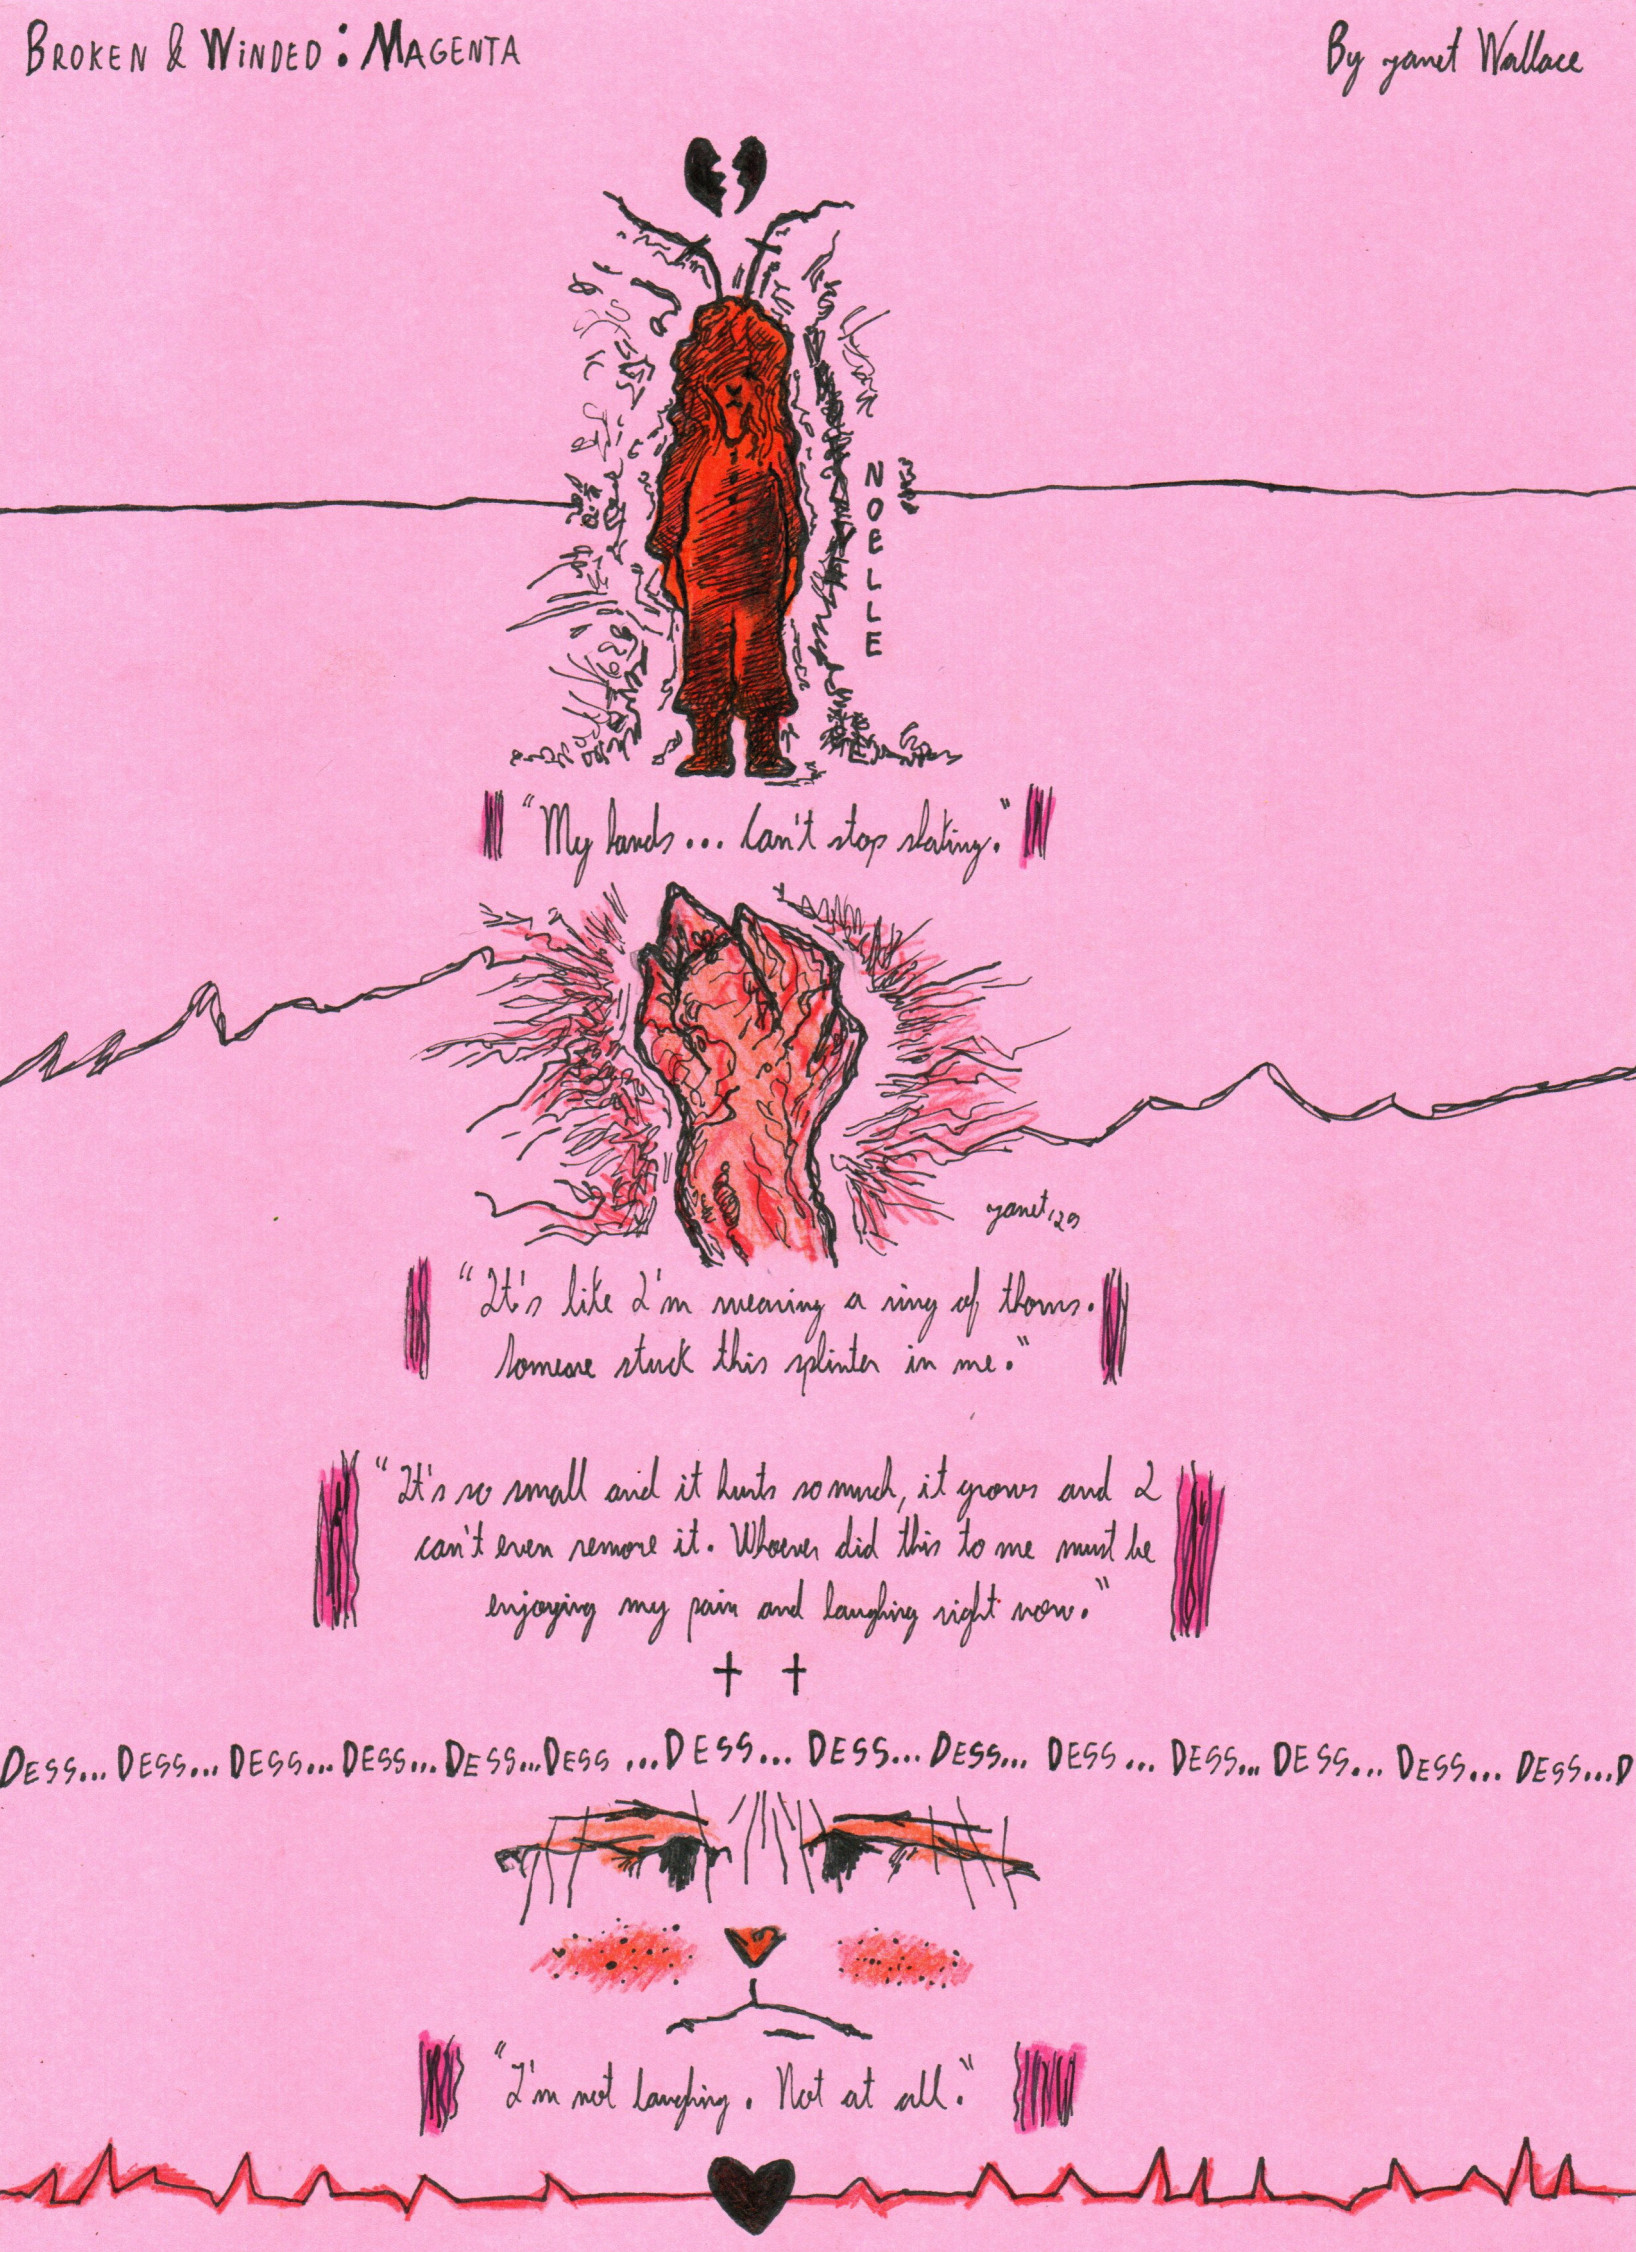 BROKEN & WINDED: MAGENTA
By yanet Wallace
NOELLE
"My hands... Can't stop shaking."
yanet129
"It's like I'm wearing a ring of thorns.
Someone stuck this splinter in me."
"It's so small and it hurts so much, it grows and I
can't even remove it. Whoever did this to me must be
enjoying my pain and laughing right now."
DESS... DESS... DESS... DESS... DESS... DESS ... DESS... DESS... DESS... DESS... DESS... DESS... DESS... DESS... D
"I'm not laughing. Not at all."